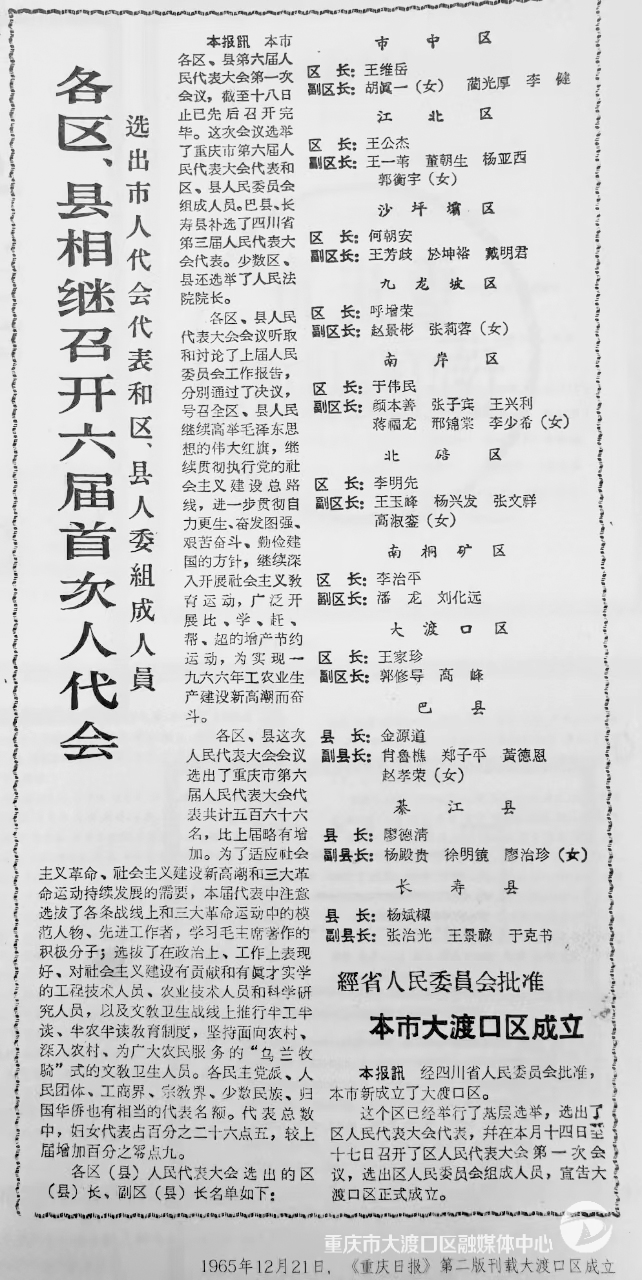 各区、县相继召开六届首次人代会
选出市人代会代表和区、县人委組成人員
本报訊　本市
各区、县第六届人
民代表大会第一次
会议，截至十八日
止已先后召开完
毕。这次会议选举
了重庆市第六届人
民代表大会代表和
区、县人民委员会
组成人员。巴县、长
寿县补选了四川省
第三届人民代表大
会代表。少数区、
县还选举了人民法
院院长。
各区、县人民
代表大会会议听取
和讨论了上届人民
委员会工作报告，
分别通过了决议，
号召全区、县人民
继续高举毛泽东思
想的伟大红旗，继
续贯彻执行党的社
会主义建设总路
线，进一步贯彻自
力更生、奋发图强、
艰苦奋斗、勤俭建
国的方针，继续深
入开展社会主义教
育运动，广泛开
展比、学、赶、
帮、超的增产节约
运动，为实现一
九六六年工农业生
产建设新高潮而奋
斗。
各区、县这次
人民代表大会会议
选出了重庆市第六
届人民代表大会代
表共计五百六十六
名，比上届略有增
加。为了适应社会
主义革命、社会主义建设新高潮和三大革
命运动持续发展的需要，本届代表中注意
选拔了各条战线上和三大革命运动中的模
范人物、先进工作者，学习毛主席著作的
积极分子；选拔了在政治上、工作上表现
好、对社会主义建设有贡献和有眞才实学
的工程技术人员、农业技术人员和科学研
究人员，以及文敎卫生战线上推行半工半
读、半农半读敎育制度，坚持面向农村、
深入农村、为广大农民服务的“乌兰牧
骑”式的文敎卫生人员。各民主党派、人
民团体、工商界、宗敎界、少数民族、归
国华侨也有相当的代表名额。代表总数
中，妇女代表占百分之二十六点五，较上
届增加百分之零点九。
各区（县）人民代表大会选出的区
（县）长、副区（县）长名单如下：
市中区
区　长：王维岳
副区长：胡眞一（女）　蔺光厚　李　健
江北区
区　长：王公杰
副区长：王一苇　董朝生　杨亚西
郭衡宇（女）
沙坪壩区
区　长：何朝安
副区长：王芳歧　於坤裕　戴明君
九龙坡区
区　长：呼增荣
副区长：赵景彬　张莉蓉（女）
南岸区
区　长：于伟民
副区长：颜本善　张子宾　王兴利
蒋福龙　邢锦棠　李少希（女）
北碚区
区　长：李明先
副区长：王玉峰　杨兴发　张文祥
高淑銮（女）
南桐矿区
区　长：李治平
副区长：潘　龙　刘化远
大渡口区
区　长：王家珍
副区长：郭修导　高　峰
巴县
县　长：金源道
副县长：肖鲁樵　郑子平　黄德恩
赵孝荣（女）
綦江县
县　长：廖德清
副县长：杨殿贵　徐明镜　廖治珍（女）
长寿县
县　长：杨斌樞
副县长：张治光　王景祿　于克书
經省人民委員会批准
本市大渡口区成立
本报訊　经四川省人民委员会批准，
本市新成立了大渡口区。
这个区已经举行了基层选举，选出了
区人民代表大会代表，幷在本月十四日至
十七日召开了区人民代表大会第一次会
议，选出区人民委员会组成人员，宣告大
渡口区正式成立。
重庆市大渡口区融媒体中心
1965年12月21日，《重庆日报》第二版刊载大渡口区成立